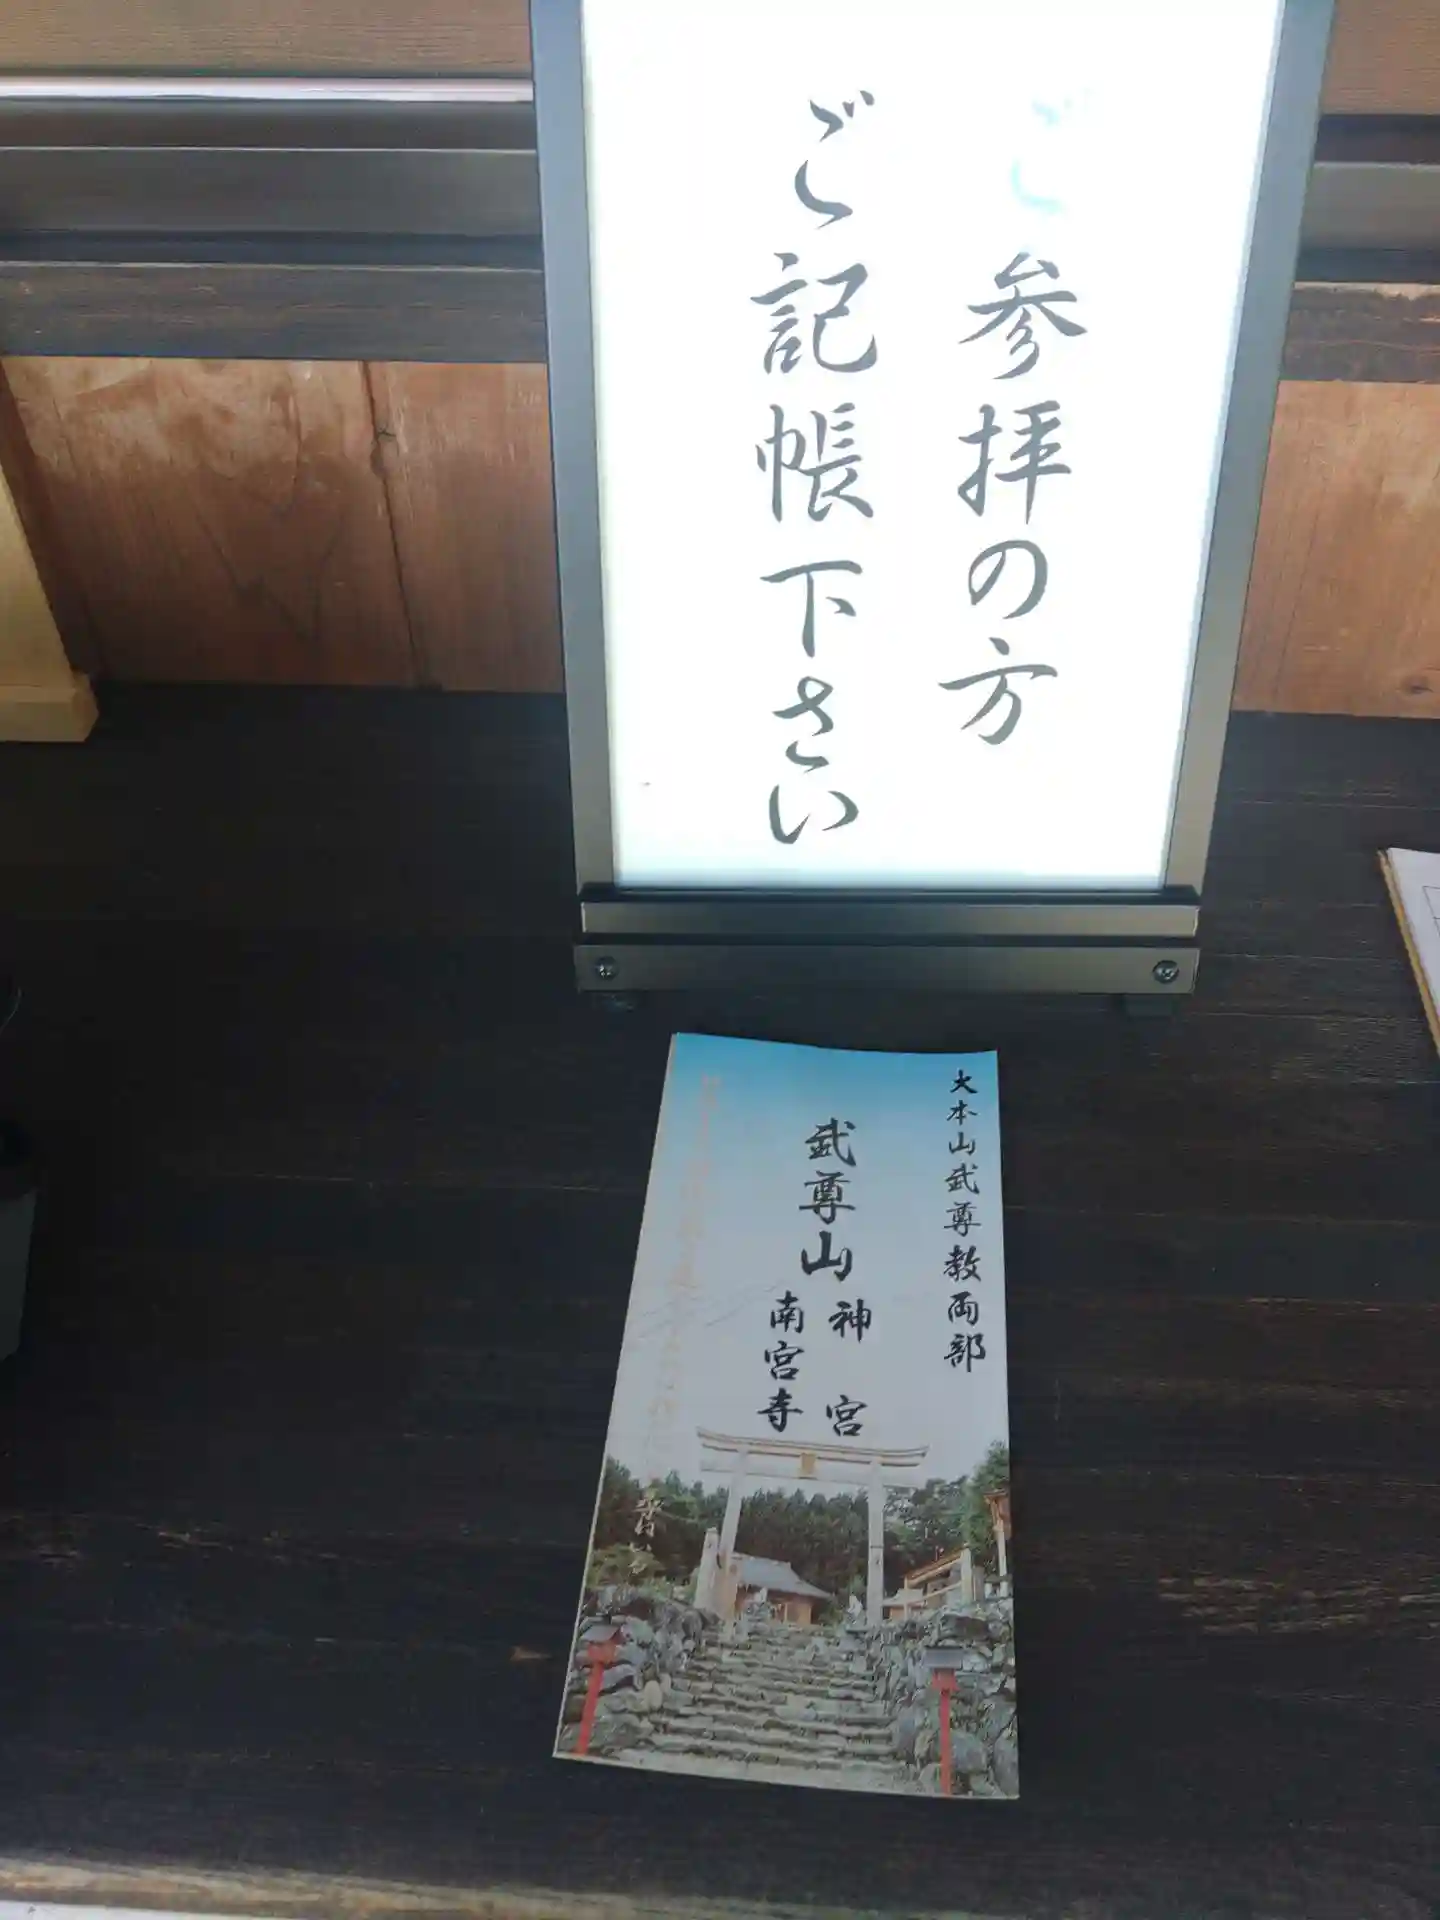 ご参拝の方
ご記帳下さい
大本山武尊教両部
武尊山
神宮
南宮寺